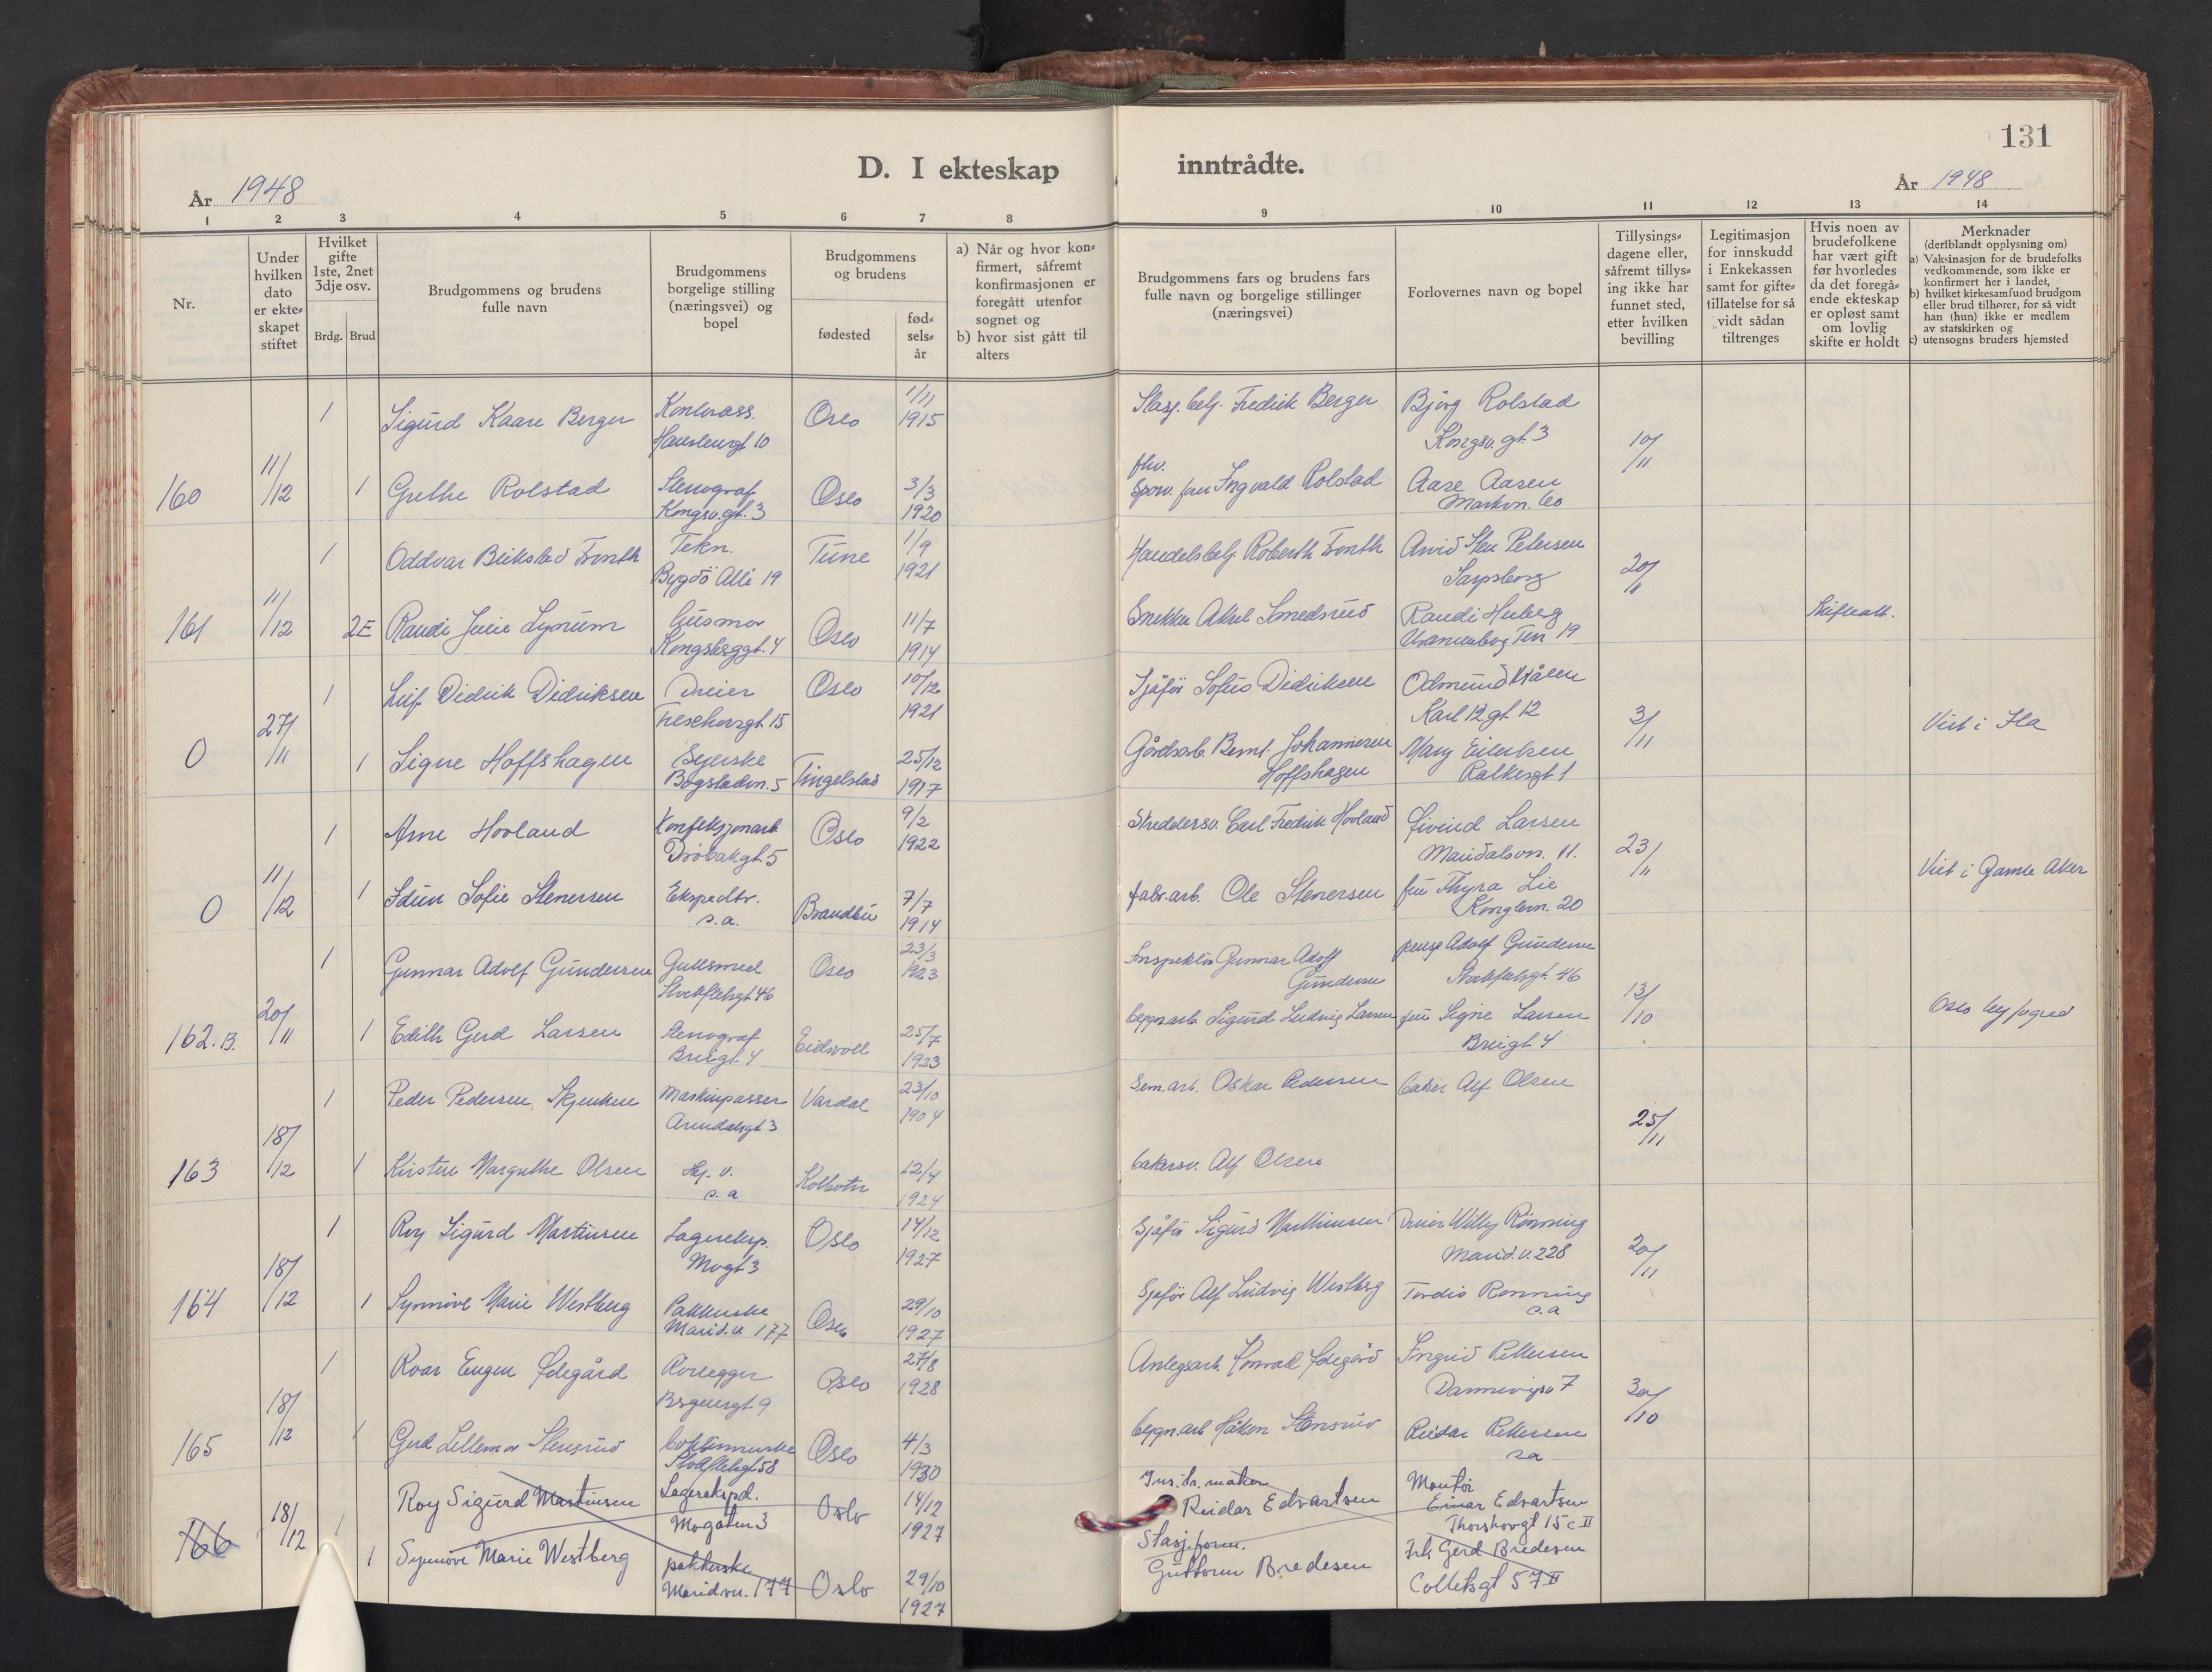 131
D. I ekteskap inntrådte.
År 1948
År 1948
1 2 3 4 5 6 7 8 9 10 11 12 13 14
Nr.
Under
hvilken
dato
er ekte=
skapet
stiftet
Hvilket
gifte
1ste, 2net
3dje osv.
Brdg. Brud
Brudgommens og brudens
fulle navn
Brudgommens
borgelige stilling
(næringsvei) og
bopel
Brudgommens
og brudens
fødested
fød=
sels=
år
a) Når og hvor kon=
firmert, såfremt
konfirmasjonen er
foregått utenfor
sognet og
b) hvor sist gått til
alters
Brudgommens fars og brudens fars
fulle navn og borgelige stillinger
(næringsvei)
Forlovernes navn og bopel
Tillysings=
dagene eller,
såfremt tillys=
ing ikke har
funnet sted,
etter hvilken
bevilling
Legitimasjon
for innskudd
i Enkekassen
samt for gifte=
tillatelse for så
vidt sådan
tiltrenges
Hvis noen av
brudefolkene
har vært gift
før hvorledes
da det foregå=
ende ekteskap
er opløst samt
om lovlig
skifte er holdt
Merknader
(deriblandt opplysning om)
a) Vaksinasjon for de brudefolks
vedkommende, som ikke er
konfirmert her i landet,
b) hvilket kirkesamfund brudgom
eller brud tilhører, for så vidt
han (hun) ikke er medlem
av statskirken og
c) utensogns bruders hjemsted
1 Sigurd Kaare Berger Oslo 1/11 1915 Fredrik Berger Bjørg Rolstad
Kongsv. gt. 3 10/11
160 11/12 1 Grethe Rolstad Stenograf
Kongsv. gt. 3 Oslo 3/3 1920 fhv.
Sporv. Ingvald Rolstad Aase Aasen
Markvn. 60
1 Oddvar Tekn.
Bygdö Alle 19 Tune 1/9 1921 Arvid Sten Petersen
Sarpsborg 20/11
161 11/12 2E Randi Julie Lynum Husmor
Kongsberggt. 4 Oslo 11/7 1914 Snekker Aksel Smedsrud Randi
19 Skifteatt.
1 Leif Didrik Didriksen Dreier
15 Oslo 10/12 1921 Sjåfør Sofus Didriksen Odmund
Karl 12 gt 12 3/11
0 27/11 1 Signe Hoffshagen Syerske
Bogstadvn. 5 Tingelstad 25/12 1917 Gårdsarb. Bernt Johannesen
Hoffshagen Mary
1 Viet i Ila
1 Arne Hovland Konfeksjonarb.
Drøbakgt. 5 Oslo 9/2 1922 Skreddersv. Carl Fredrik Hovland Øivind Larsen
Maridalsvn. 11. 23/11
0 11/12 1 Idun Sofie Stenersen Ekspedtr.
s.a. Brandbu 7/7 1914 fabr. arb. Ole Stenersen fru Thyra Lie
Konglevn. 20 Viet i Gamle Aker
1 Gunnar Adolf Gundersen Gullsmed
Stockflethsgt 46 Oslo 23/3 1923 Inspektör Gunnar Adolf
Gundersen Adolf Gundersen
Stockflethsgt. 46 13/10
162.B. 20/11 1 Edith Gerd Larsen Stenograf
Brugt. 4 Eidsvoll 25/7 1923 byggn.arb. Sigurd Ludvig Larsen fru Signe Larsen
Brugt 4 Oslo
1 Peder Pedersen Maskinpasser
Arendalsgt 3 Vardal 23/10 1904 Sem. arb. Oskar Pedersen baker Alf Olsen 25/11
163 18/12 1 Kirsten Margrethe Olsen Hj. v.
s.a Kolbotn 12/4 1924 bakersv. Alf Olsen
1 Roy Sigurd Martinsen Lagereksp.
Mogt 3 Oslo 14/12 1927 Sjåför Sigurd Marthinsen Dreier Willy Rönning
Marid.v. 228 20/11
164 18/12 1 Synnöve Marie Westberg Pakkerske
Marid.v. 177 Oslo 29/10 1927 Sjåför Alf Ludvig Westberg Tordis Rønning
s.a
1 Roar Eugen Ødegård Rørlegger
Bergensgt 9 Oslo 27/8 1928 Anlegsarb. Konrad Ødegård Ingrid Pettersen
7 30/10
165 18/12 1 Gerd Lillemor Stensrud
Stockflethsgt 58 Oslo 4/3 1930 byggn.arb. Håkon Stensrud Reidar Pettersen
sa
166 18/12 1 Roy Sigurd Martinsen Lagerekspd.
Mogaten 3 Oslo 14/12 1927 Ins.tr. maker
Reidar Edvartsen Montör
Einar Edvartsen
Thorshovgt 15 c II
1 Synnöve Marie Westberg pakkerske
Maridvn. 177 Oslo 29/10 1927 Stasj.form.
Guttorm Bredesen Frk Gerd Bredesen
Colletsgt 57 II